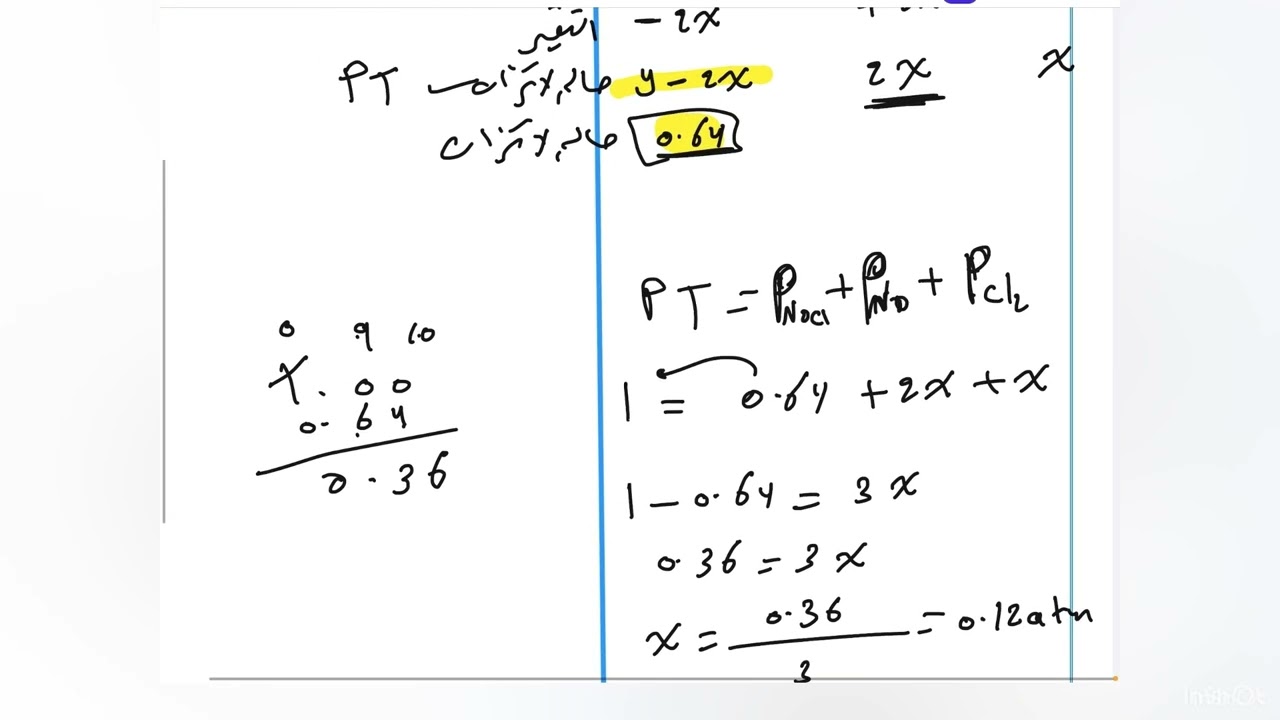 التغير - 2x
PT عند الاتزان y - 2x 2x x
عند الاتزان 0.64
PT = PNOCl + PNO + PCl2
0 9 10
1.00
0.64
0.36
1 = 0.64 + 2x + x
1 - 0.64 = 3x
0.36 = 3x
x = 0.36 / 3 = 0.12 atm
InShOt